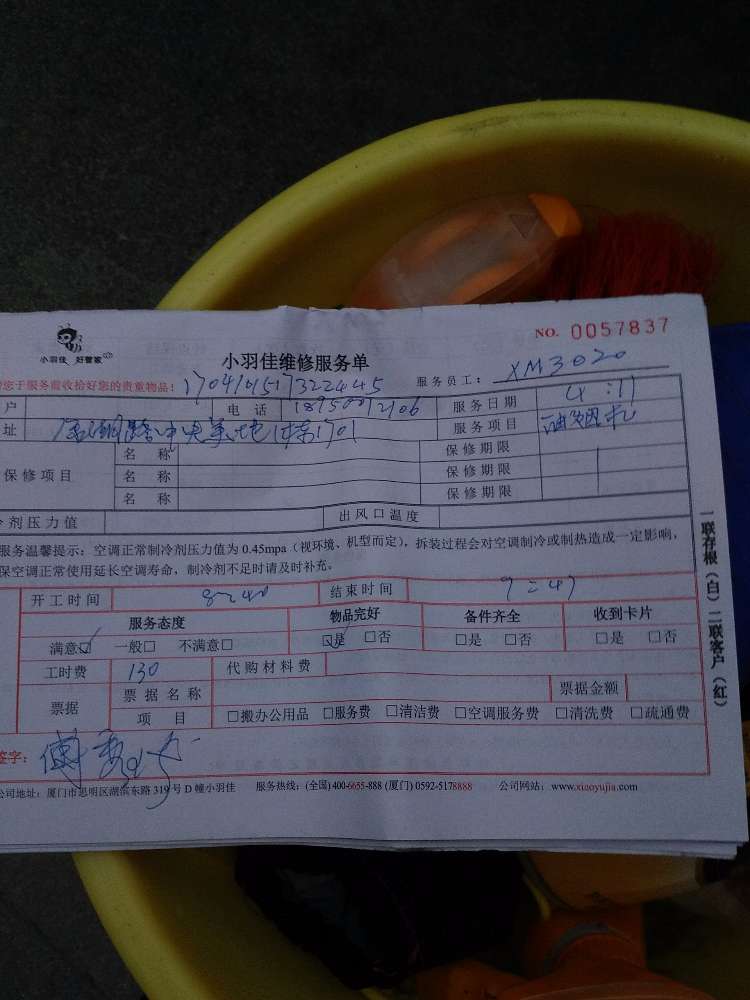 NO. 0057837
小羽佳 好管家
小羽佳维修服务单
您于服务前收拾好您的贵重物品！
服务员工： XM3020
户 电 话 服务日期 4:11
址 服务项目 油烟机
保修项目 名 称 保修期限
名 称 保修期限
名 称 保修期限
冷剂压力值 出风口温度
服务温馨提示：空调正常制冷剂压力值为 0.45mpa（视环境、机型而定），拆装过程会对空调制冷或制热造成一定影响，
保空调正常使用延长空调寿命，制冷剂不足时请及时补充。
开工时间 8:40 结束时间 9:47
服务态度 物品完好 备件齐全 收到卡片
满意☑ 一般□ 不满意□ ☑是 □否 □是 □否 □是 □否
工时费 130 代购材料费
票据 票据名称 票据金额
项 目 □搬办公用品 □服务费 □清洁费 □空调服务费 □清洗费 □疏通费
签字：
公司地址：厦门市思明区湖滨东路 319 号 D 幢小羽佳 服务热线：(全国) 400-6655-888 (厦门) 0592-5178888 公司网站：www.xiaoyujia.com
一联存根（白）二联客户（红）